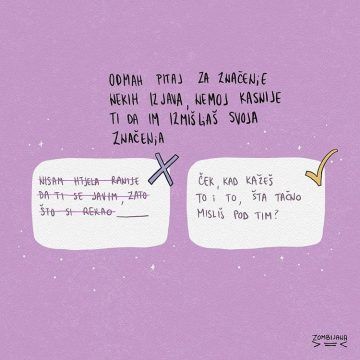 ODMAH PITAJ ZA ZNAČENJE
NEKIH IZJAVA, NEMOJ KASNIJE
TI DA IM IZMIŠLJAŠ SVOJA
ZNAČENJA
NISAM HTJELA RANIJE
DA TI SE JAVIM, ZATO
ŠTO SI REKAO ______
ČEK, KAD KAŽEŠ
TO I TO, ŠTA TAČNO
MISLIŠ POD TIM?
ZOMBIJANA